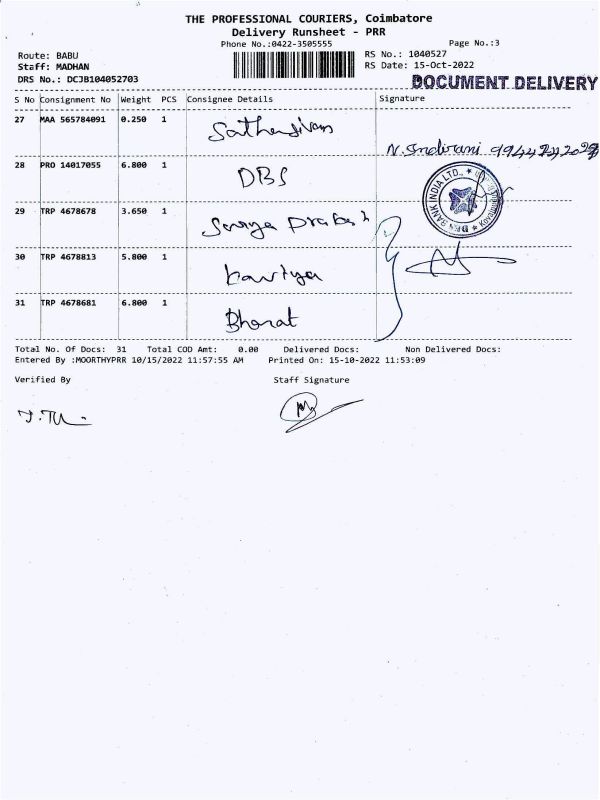 THE PROFESSIONAL COURIERS, Coimbatore
Delivery Runsheet - PRR
Phone No.:0422-3505555
Page No.:3
Route: BABU
RS No.: 1040527
Staff: MADHAN
RS Date: 15-Oct-2022
DRS No.: DCJB104052703
DOCUMENT DELIVERY
S No Consignment No Weight PCS Consignee Details Signature
27 MAA 565784091 0.250 1 Sathasivam
N. Indirani
28 PRO 14017055 6.800 1 DBS
DBS BANK INDIA LTD.,
29 TRP 4678678 3.650 1 Surya Prakash
30 TRP 4678813 5.800 1 Kavtya
31 TRP 4678681 6.800 1 Bharat
Total No. Of Docs: 31 Total COD Amt: 0.00 Delivered Docs: Non Delivered Docs:
Entered By :MOORTHYPRR 10/15/2022 11:57:55 AM Printed On: 15-10-2022 11:53:09
Verified By Staff Signature